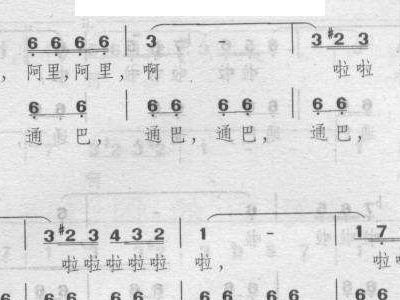 6 6 6 6 | 3 - | 3 #2 3
，阿里，阿里，啊 啦啦
6 6 | 6 6 6 6 | 6 6
通 巴， 通巴，通巴， 通巴，
3 #2 3 4 3 2 | 1 - | 1 7
啦啦啦啦啦 啦， 啦